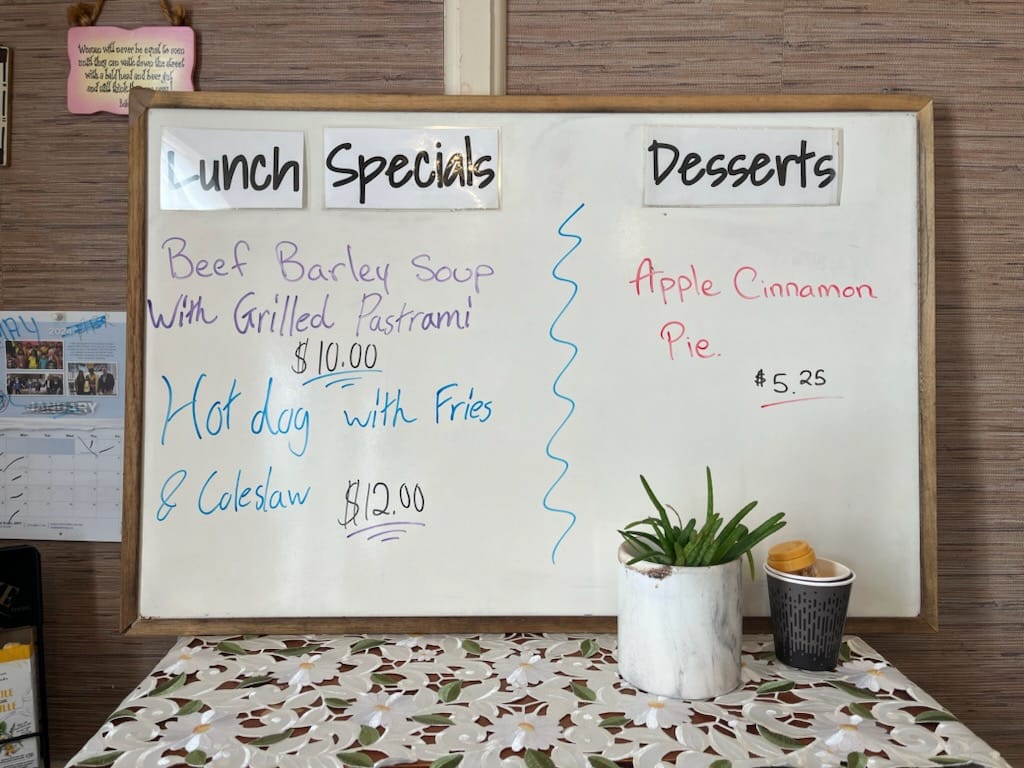 Women will never be equal to men
until they can walk down the street
with a bald head and beer gut
and still think they are sexy
Lunch Specials
Desserts
Beef Barley Soup
With Grilled Pastrami
$10.00
Hot dog with Fries
& Coleslaw $12.00
Apple Cinnamon
Pie.
$5.25
MAY
JANUARY